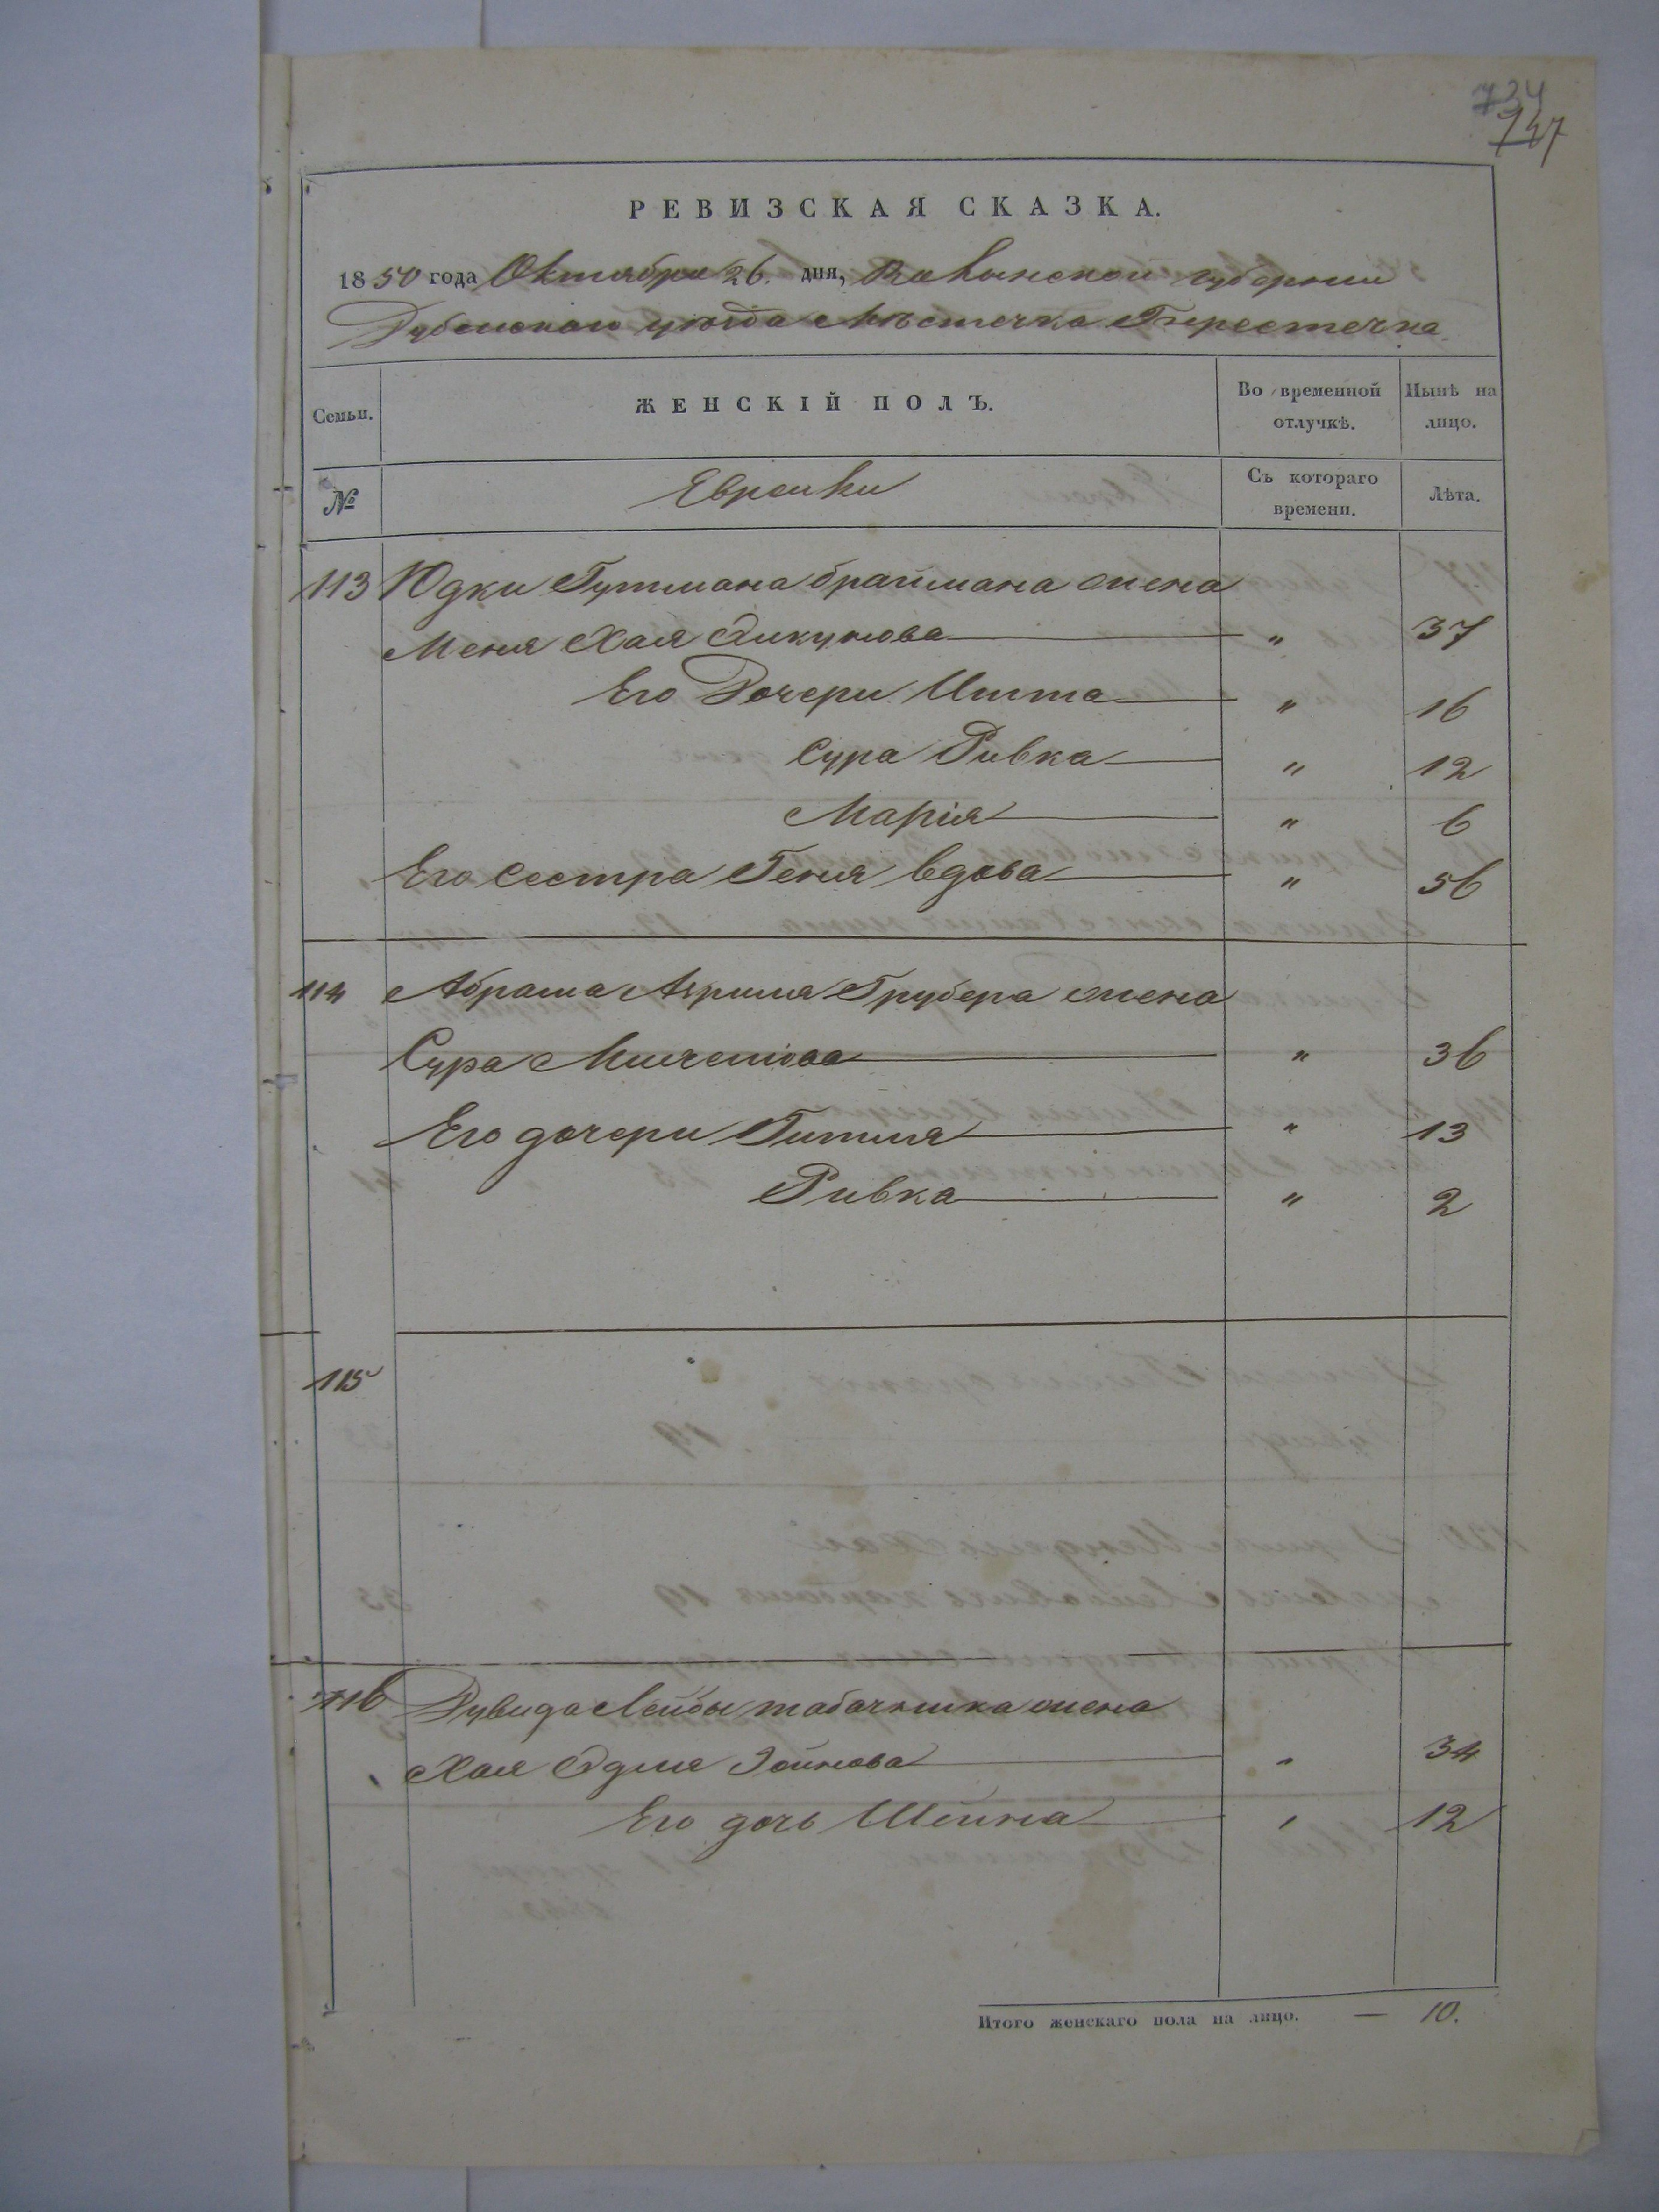 734
147
РЕВИЗСКАЯ СКАЗКА.
1850 года Октября 26. дня, Волынской губернии
Дубенского уѣзда Мѣстечка Берестечка
Семьи.
ЖЕНСКІЙ ПОЛЪ.
Во временной отлучкѣ.
Нынѣ на лицо.
№
Евреики
Съ котораго времени.
Лѣта.
113 Юдки Гутмана браймана жена
Меня Хая Янкунова " 37
Его Дочери Итта " 16
Сура Ривка " 12
Марія " 6
Его Сестра Геня вдова " 56
114 Абрама Арыша Грубера жена
Сура " 36
Его дочери Гитля " 13
Ривка " 2
115
116 Дувида Лейбы табачника жена
Хая Эдля " 34
Его дочь Шейна " 12
Итого женскаго пола на лицо. — 10.